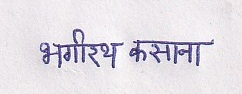 भगीरथ कसाना